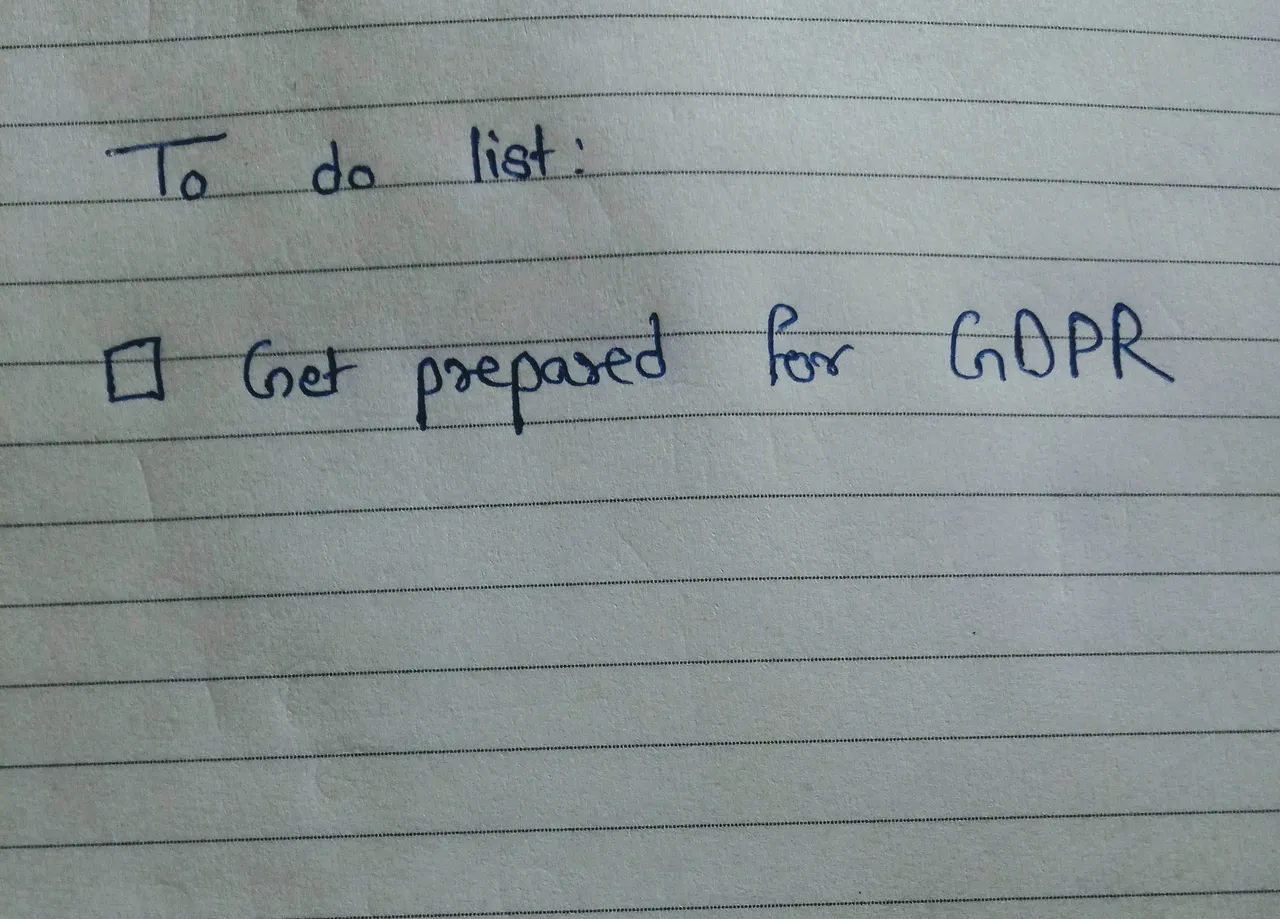 To do list:
Get prepared for GDPR